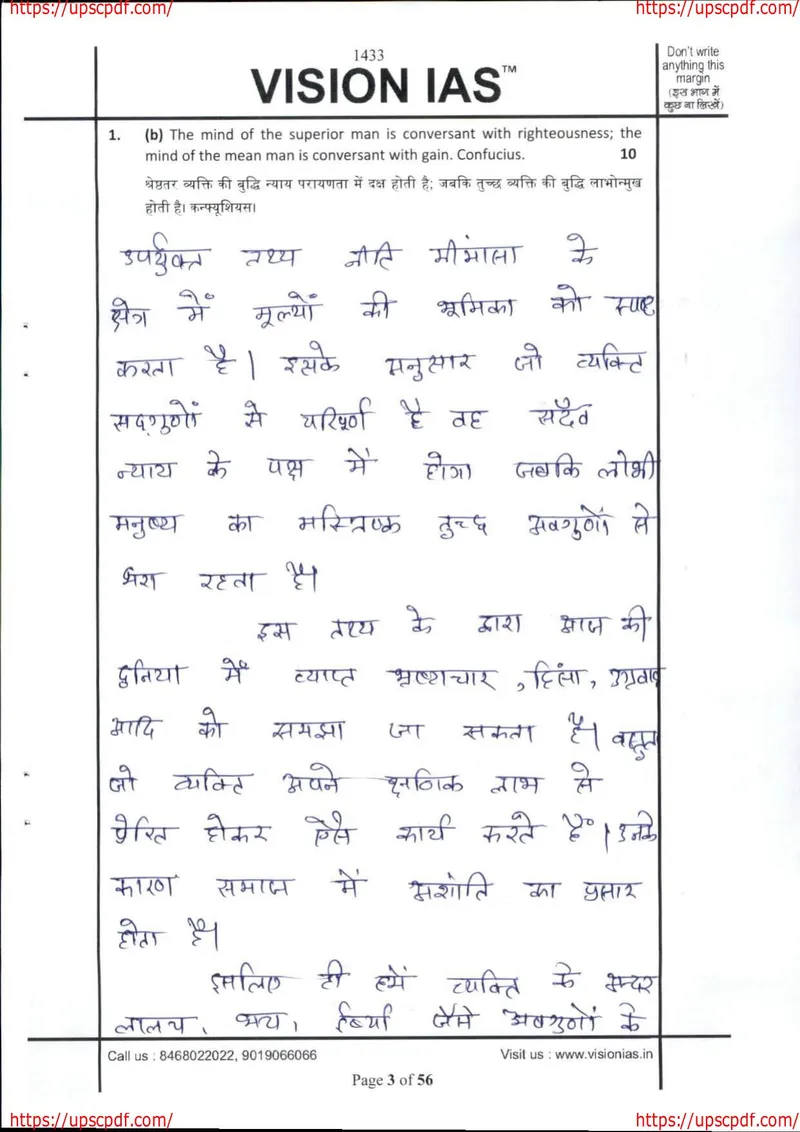 https://upscpdf.com/ https://upscpdf.com/
1433
VISION IAS™
Don't write
anything this
margin
(इस भाग में
कुछ ना लिखें)
1. (b) The mind of the superior man is conversant with righteousness; the
mind of the mean man is conversant with gain. Confucius. 10
श्रेष्ठतर व्यक्ति की बुद्धि न्याय परायणता में दक्ष होती है; जबकि तुच्छ व्यक्ति की बुद्धि लाभोन्मुख
होती है। कन्फ्यूशियस।
उपर्युक्त तथ्य नीति मीमांसा के
क्षेत्र में मूल्यों की भूमिका को स्पष्ट
करता है। इसके अनुसार जो व्यक्ति
सद्गुणों से परिपूर्ण है वह सदैव
न्याय के पक्ष में होगा जबकि लोभी
मनुष्य का मस्तिष्क तुच्छ अवगुणों से
भरा रहता है।
इस तथ्य के द्वारा आज की
दुनिया में व्याप्त भ्रष्टाचार, हिंसा, उग्रवाद
आदि को समझा जा सकता है। वस्तुत
जो व्यक्ति अपने क्षणिक लाभ से
प्रेरित होकर ऐसे कार्य करते हैं। उनके
कारण समाज में अशांति का प्रसार
होता है।
इसलिए ही हमें व्यक्ति के अन्दर
लालच, भय, ईर्ष्या जैसे अवगुणों के
Call us : 8468022022, 9019066066 Visit us : www.visionias.in
Page 3 of 56
https://upscpdf.com/ https://upscpdf.com/